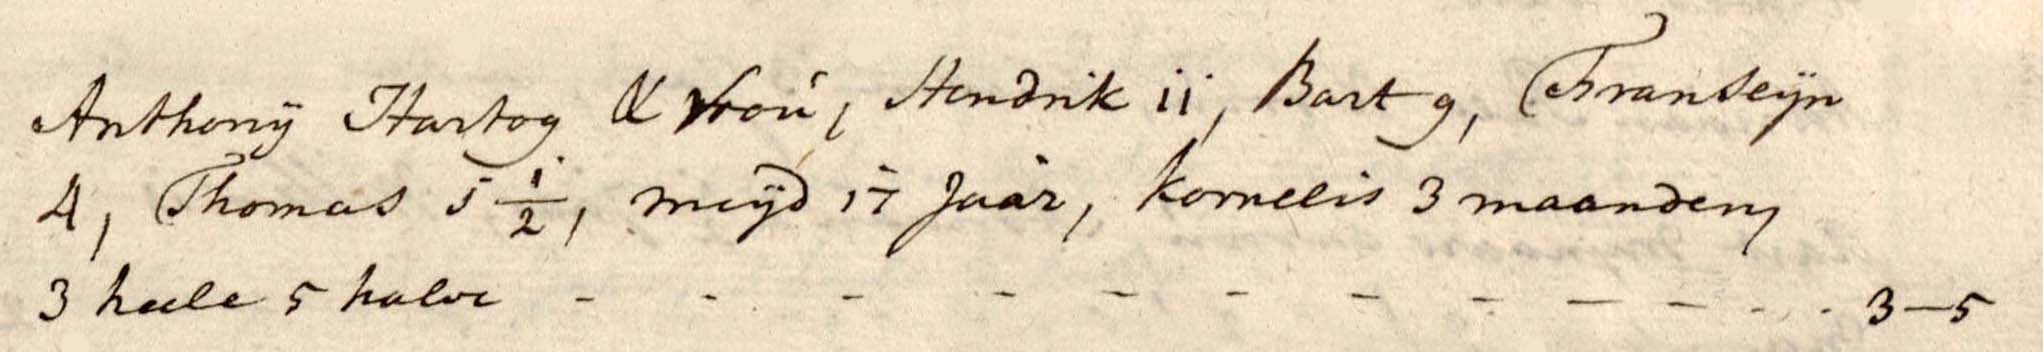 Anthonÿ Hartog & vroú, Hendrik ii, Bart 9, Franseÿn
4, Thomas 5 1/2, meÿd 17 Jaar, Kornelis 3 maanden,
3 heele 5 halve - - - - - - - - - - - - 3-5